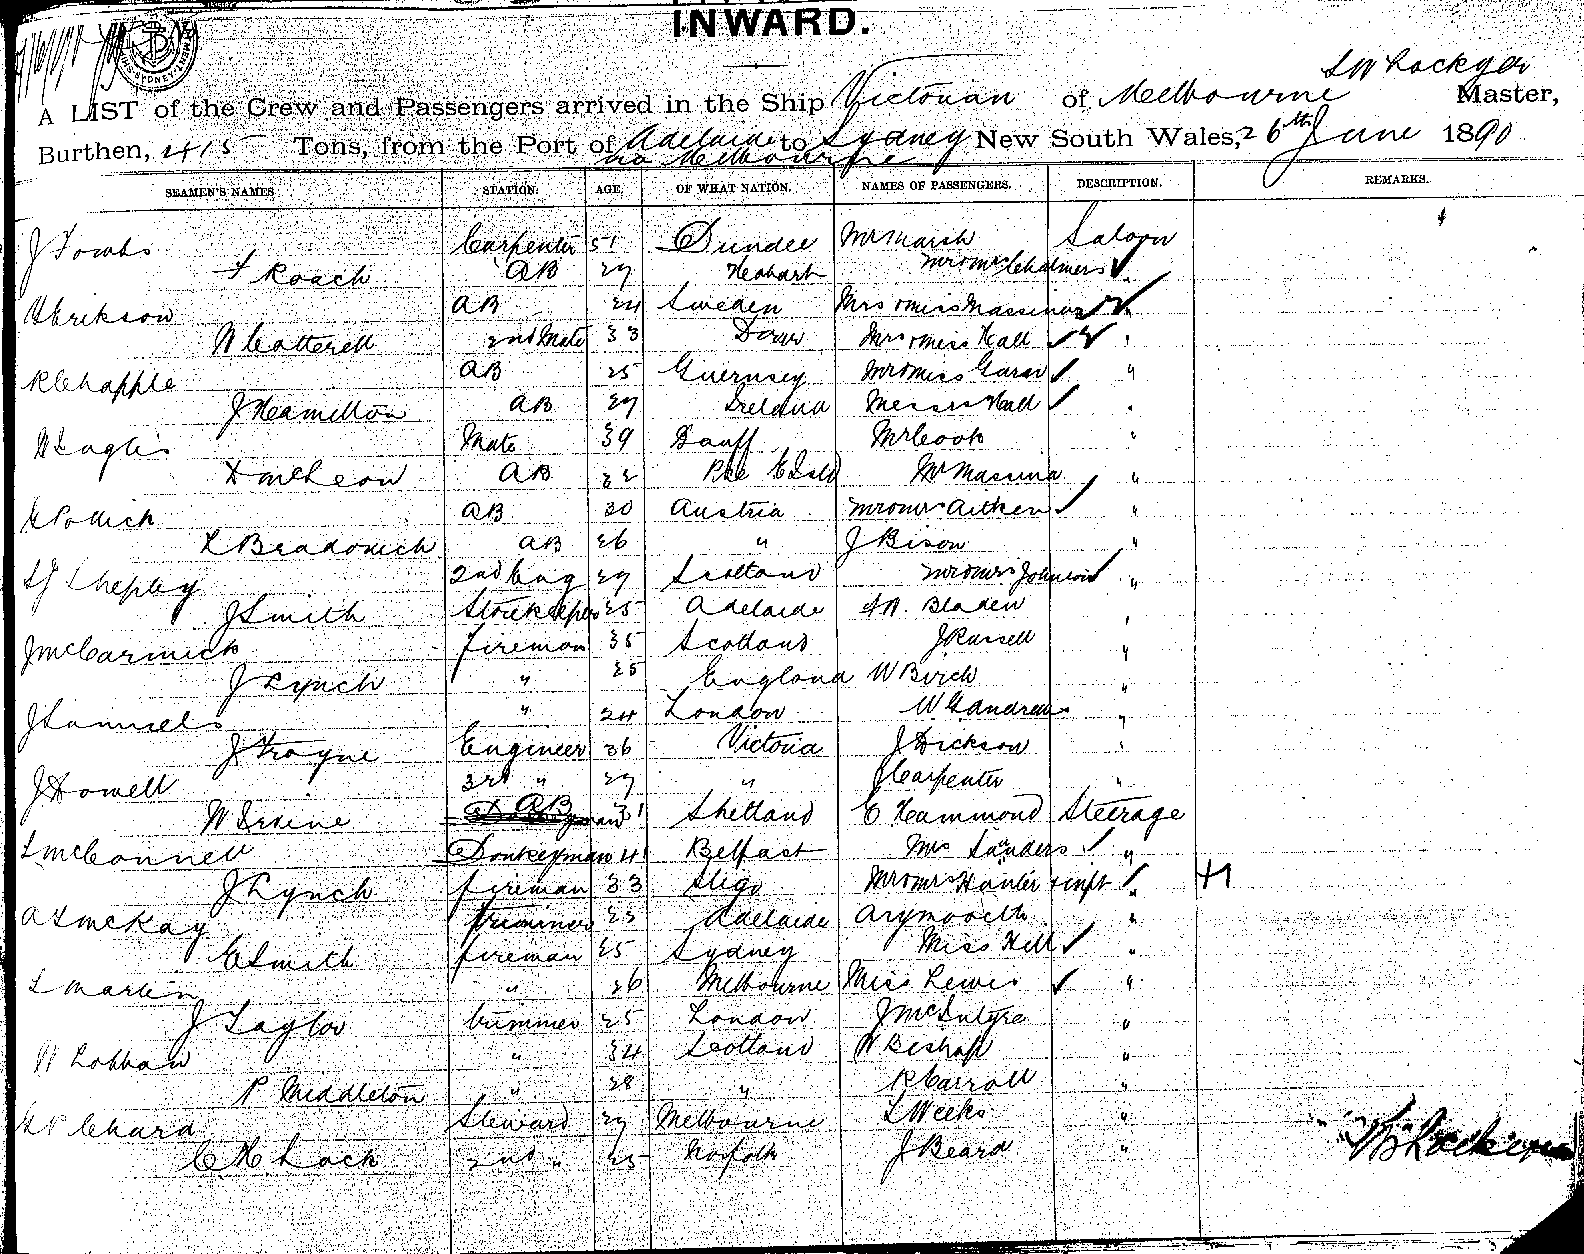 INWARD.
A LIST of the Crew and Passengers arrived in the Ship Victorian of Melbourne Lockyer Master,
Burthen, 2415 Tons, from the Port of Adelaide to Sydney New South Wales, 26th June 1890
via Melbourne
SEAMEN'S NAMES STATION. AGE. OF WHAT NATION. NAMES OF PASSENGERS. DESCRIPTION. REMARKS.
J Tombs Carpenter 51 Dundee Mr Marsh Saloon
F Roach AB 29 Hobart Mr & Mrs Chalmers "
Erikson AB 24 Sweden Mrs & Miss Massina "
W Catterell 2nd Mate 33 Mrs & Miss Hall "
R Chapple AB 25 Guernsey "
J Hamilton AB 29 Ireland Messrs Hall "
Mate 39 Banff Mr Cook "
D McLeod AB 32 Mr Massina "
AB 30 Austria Mr & Mrs Aitken "
AB 26 " J Bison "
Shepley 2nd Eng 29 Scotland Mr & Mrs Johnson "
J Smith Storekeeper 25 Adelaide Bladen "
J McCarmick fireman 35 Scotland J Russell "
J Lynch " 25 England W Birch "
J Samuels " 24 London W Gandrews "
J Trayne Engineer 36 Victoria J Dickson "
J Howell 3rd " 29 " J Carpenter "
W Irvine AB 31 Shetland C Hammond Steerage
McConnell Donkeyman 41 Belfast Mrs Sanders "
J Lynch fireman 33 Sligo Mr & Mrs Hunter & inft "
McKay trimmer 23 Adelaide "
C Smith fireman 25 Sydney Miss Hill "
Martin " 26 Melbourne Miss Lewis "
J Taylor trimmer 25 London J McIntyre "
" 34 Scotland W Bishop "
P Middleton " 28 " R Carroll "
Chard Steward 29 Melbourne Weeks "
C H Lock 2nd " 25 Norfolk J Beard "